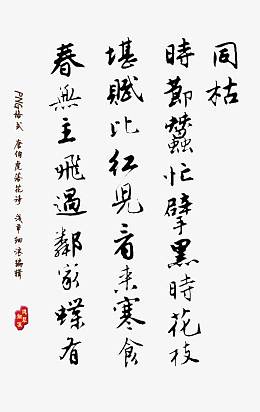 同枯
時節蠶忙擘黑時花枝
堪賦比紅児看来寒食
春無主飛過鄰家蝶有
PNG格式 唐伯虎落花诗 浅草细沫编辑